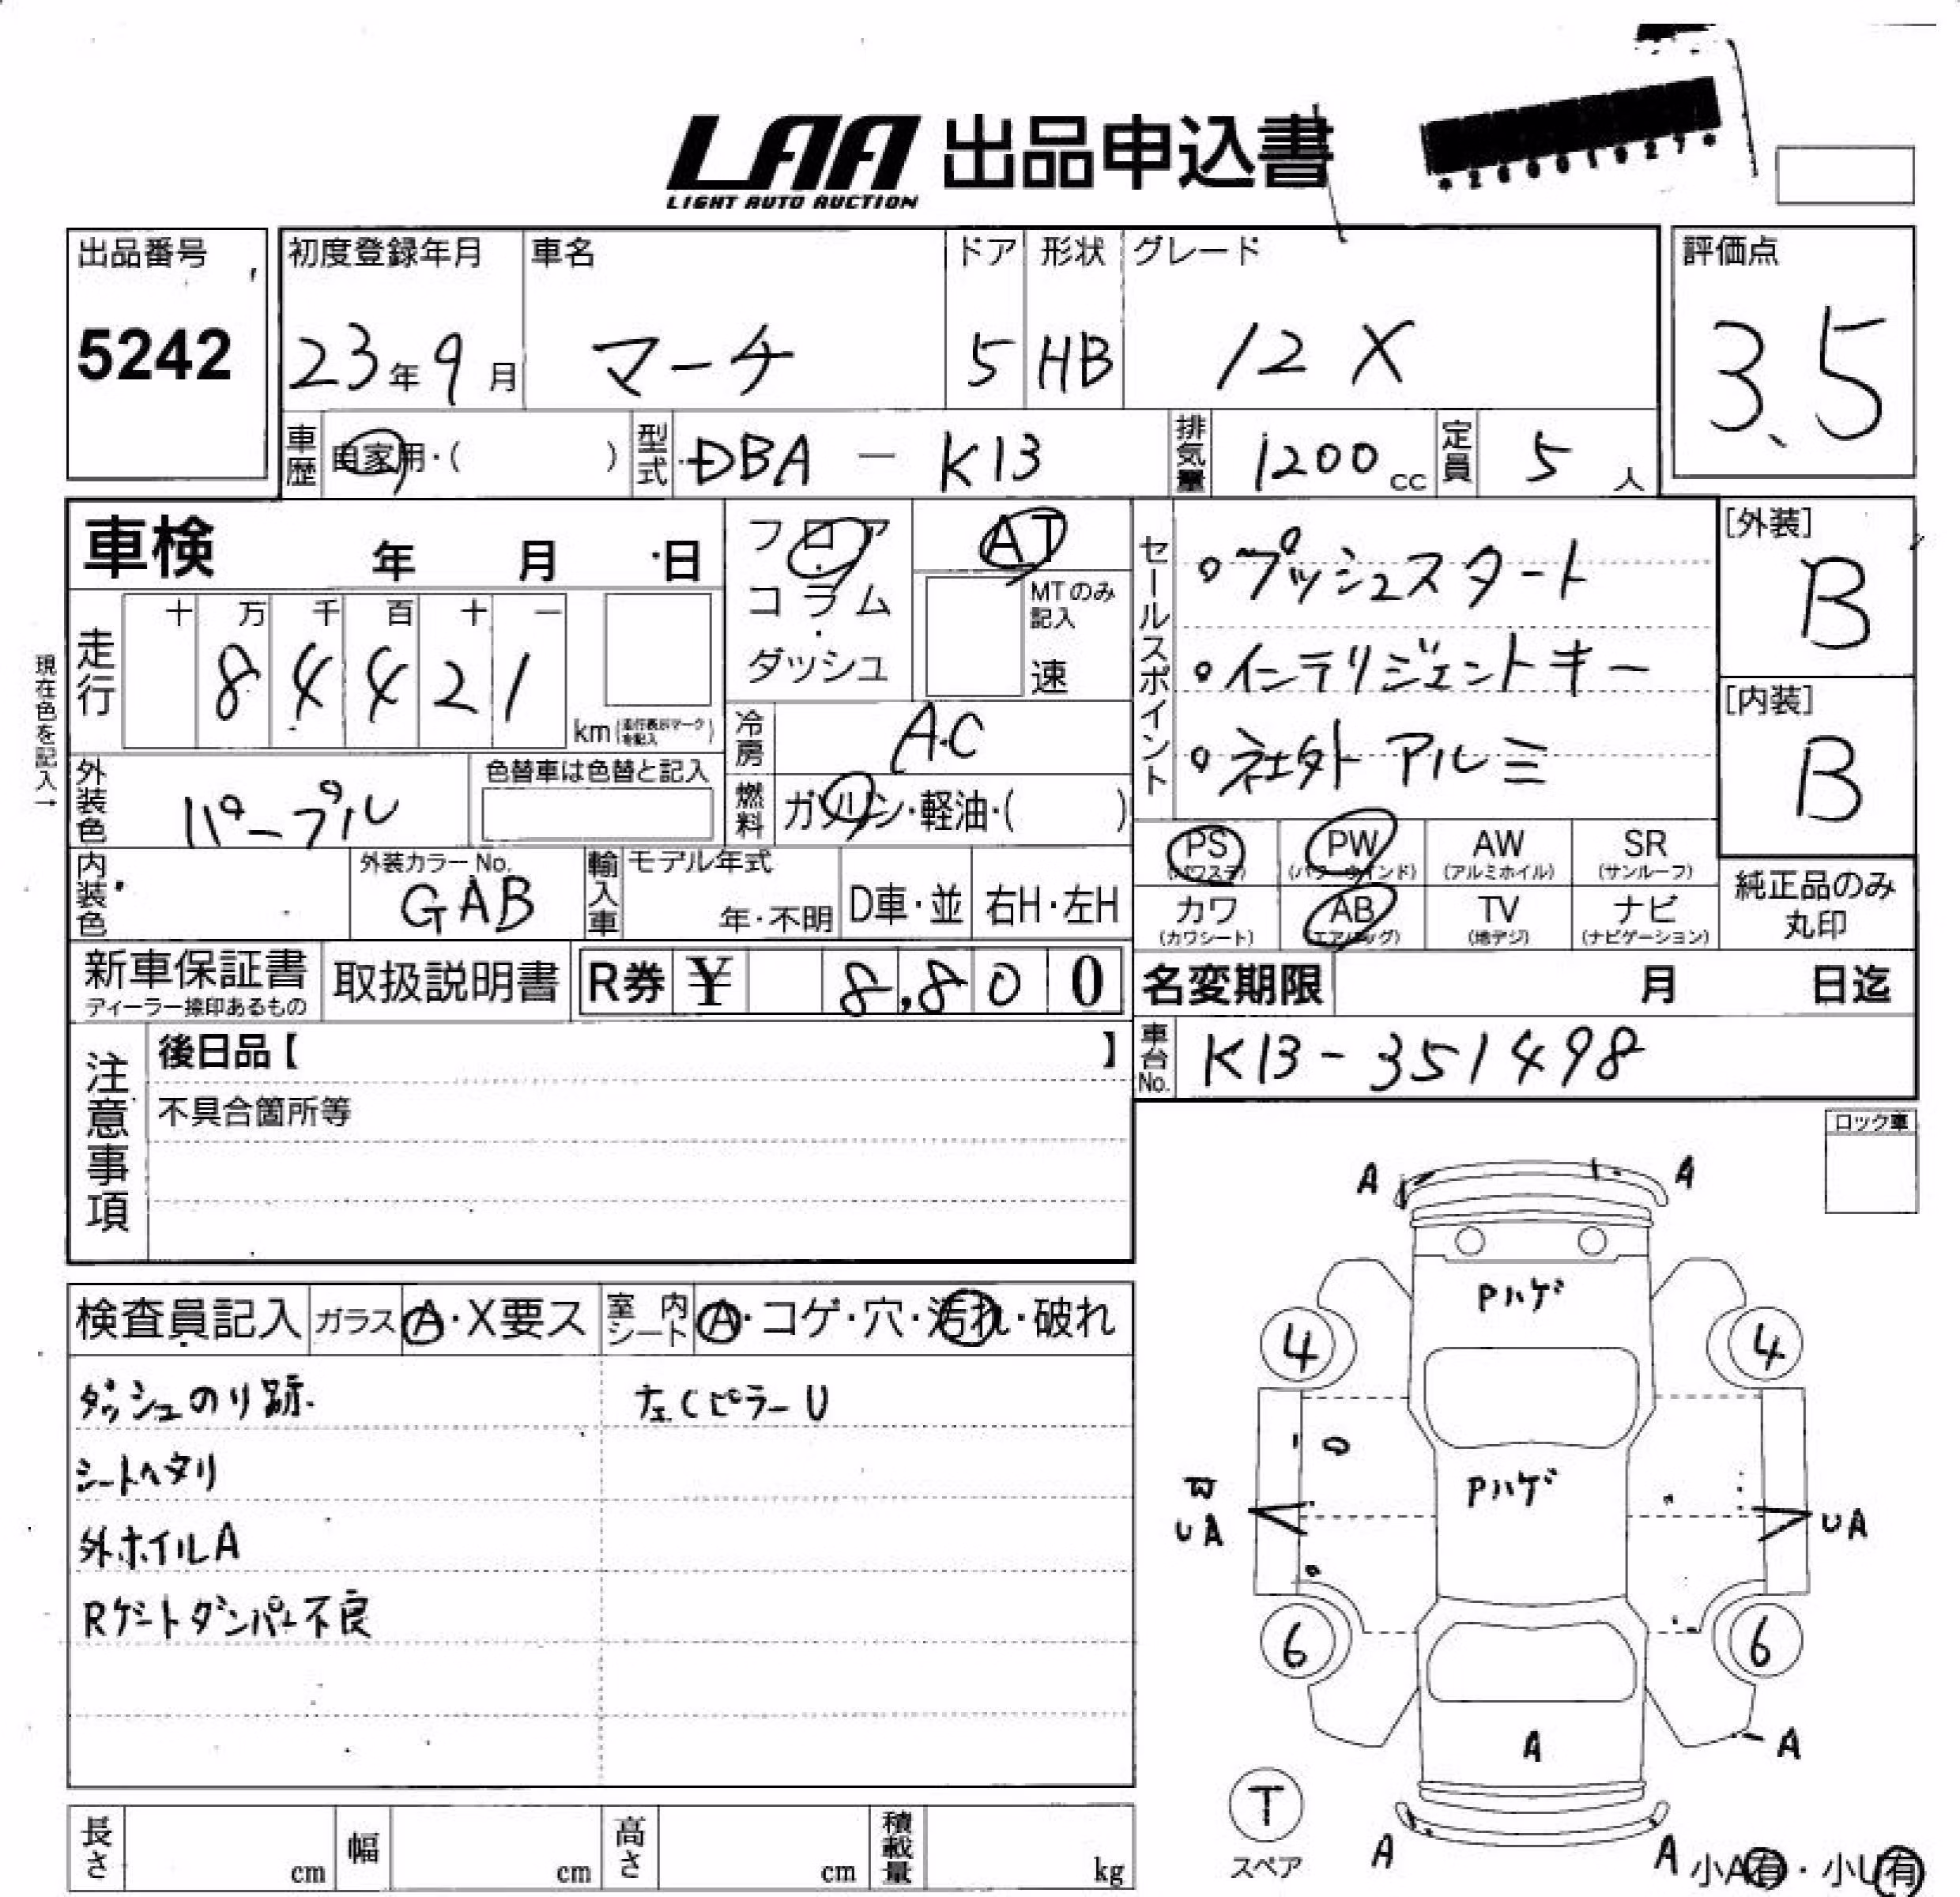 LAA 出品申込書
LIGHT AUTO AUCTION
出品番号
5242
初度登録年月
23年9月
車名
マーチ
ドア
5
形状
HB
グレード
12X
評価点
3.5
車歴
自家用・( )
型式
DBA - K13
排気量
1200cc
定員
5人
車検 年 月 日
現在色を記入→
走行
十 万 千 百 十 一
8 4 4 2 1
km (走行表示マークを記入)
フロア・コラム・ダッシュ
AT
MTのみ記入
速
冷房
A.C
燃料
ガソリン・軽油・( )
セールスポイント
○プッシュスタート
○インテリジェントキー
○社外アルミ
[外装]
B
[内装]
B
外装色
パープル
色替車は色替と記入
内装色
外装カラーNo.
GAB
輸入車
モデル年式
年・不明
D車・並
右H・左H
PS (パワステ)
PW (パワーウインド)
AW (アルミホイル)
SR (サンルーフ)
カワ (カワシート)
AB (エアバッグ)
TV (地デジ)
ナビ (ナビゲーション)
純正品のみ
丸印
新車保証書
ディーラー捺印あるもの
取扱説明書
R券 ¥ 8,800
名変期限 月 日迄
車台No.
K13-351498
注意事項
後日品【 】
不具合箇所等
ロック車
検査員記入
ガラス
A・X要ス
室内シート
A・コゲ・穴・汚れ・破れ
ダッシュのり跡
左CピラーU
シートヘタリ
外ホイルA
Rゲートダンパー不良
A A
Pハゲ
4 4
Pハゲ
UA UA
6 6
A
A
T
スペア
A A
小A有・小U有
長さ cm
幅 cm
高さ cm
積載量 kg